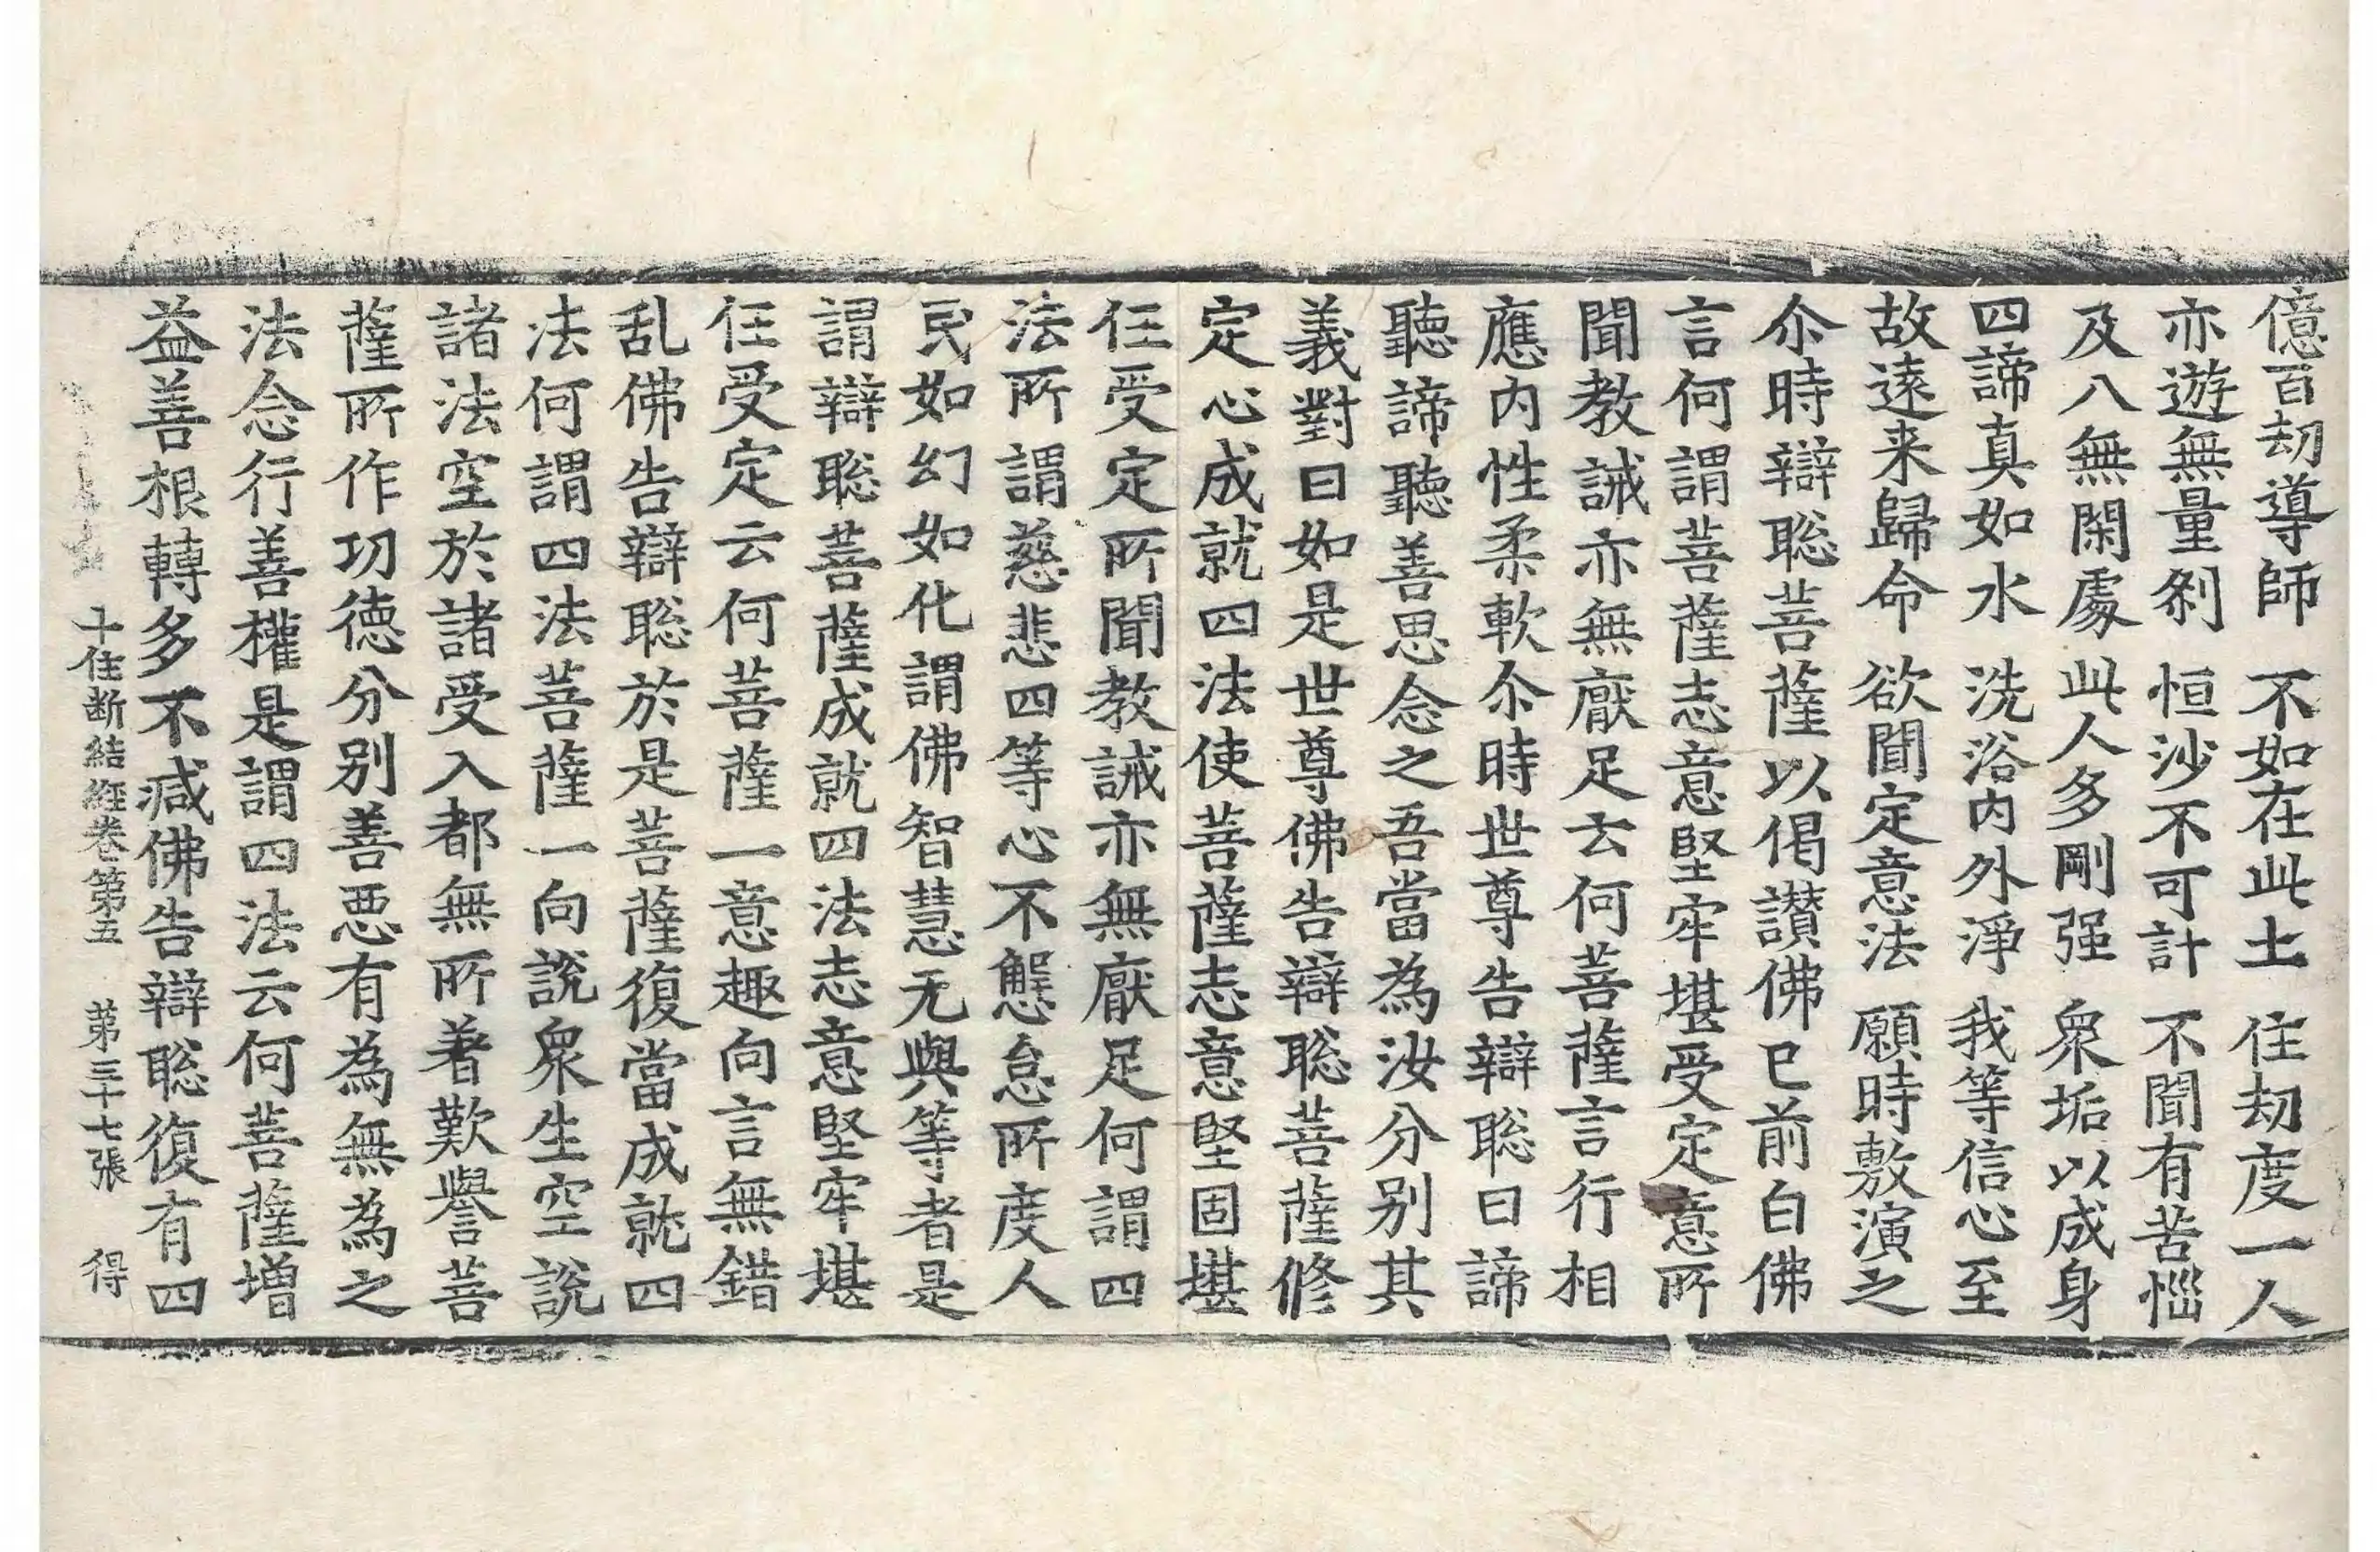 億百劫導師　不如在此土　住劫度一人
亦遊無量剎　恒沙不可計　不聞有苦惱
及八無閑處　此人多剛强　衆垢以成身
四諦真如水　洗浴内外淨　我等信心至
故遠来歸命　欲聞定意法　願時敷演之
尒時辯聡菩薩以偈讃佛已前白佛
言何謂菩薩志意堅牢堪受定意所
聞教誡亦無厭足云何菩薩言行相
應内性柔軟尒時世尊告辯聡曰諦
聽諦聽善思念之吾當為汝分别其
義對曰如是世尊佛告辯聡菩薩修
定心成就四法使菩薩志意堅固堪
任受定所聞教誡亦無厭足何謂四
法所謂慈悲四等心不懈怠所度人
民如幻如化謂佛智慧无與等者是
謂辯聡菩薩成就四法志意堅牢堪
任受定云何菩薩一意趣向言無錯
乱佛告辯聡於是菩薩復當成就四
法何謂四法菩薩一向說衆生空說
諸法空於諸受入都無所著歎譽菩
薩所作功德分别善惡有為無為之
法念行善權是謂四法云何菩薩增
益善根轉多不減佛告辯聡復有四
十住断結經卷第五　第三十七張　得